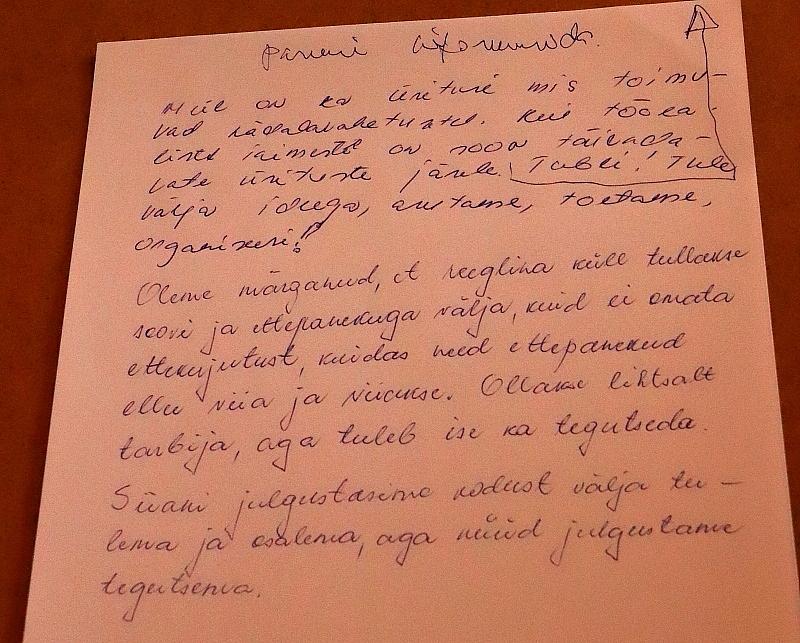 paneme
Meil on ka üritusi mis toimu-
vad nädalavahetustel. Kui tööea-
liste inimestel on soov täienda-
vate ürituste järele. Tubli! Tule
välja ideega, arutame, toetame,
organiseeri!
Oleme märganud, et reeglina küll tullakse
soovi ja ettepanekuga välja, kuid ei omata
ettekujutust, kuidas need ettepanekud
ellu viia ja viiakse. Ollakse lihtsalt
tarbija, aga tuleb ise ka tegutseda.
Siiani julgustasime kodust välja tu-
lema ja osalema, aga nüüd julgustame
tegutsema.